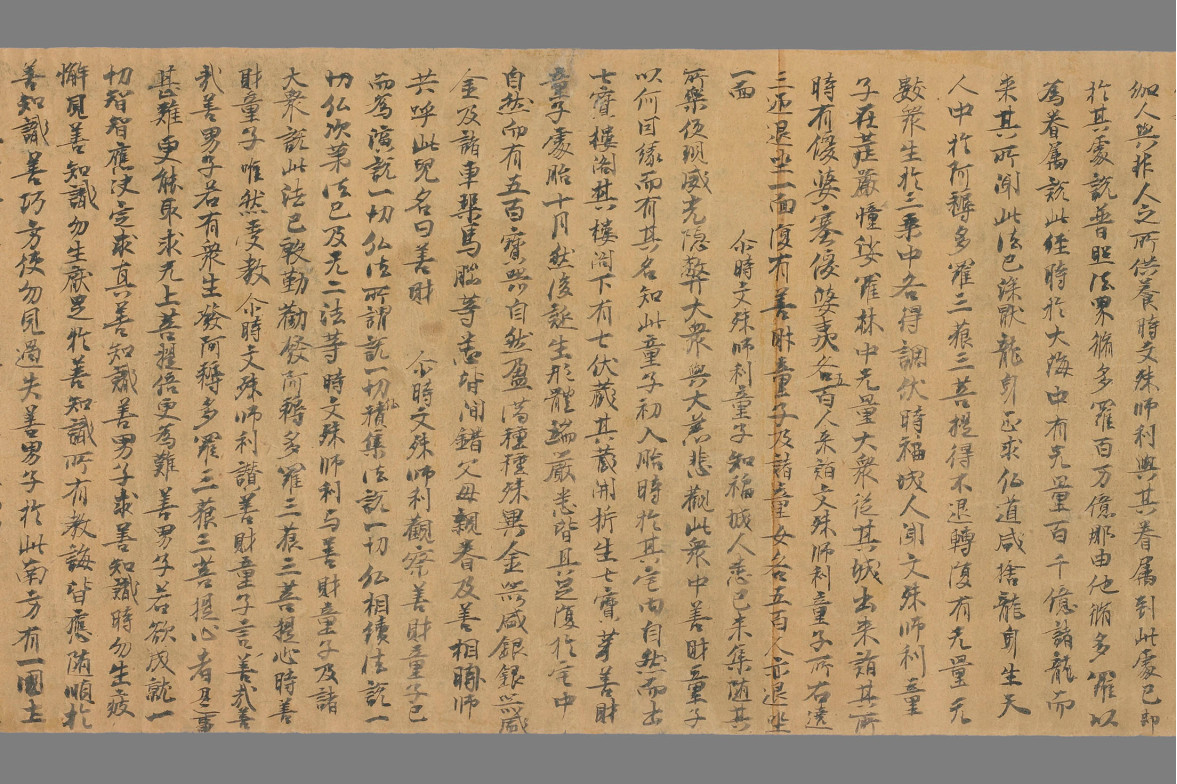 伽人與非人之所供養時文殊師利與其眷属到此處已即
於其處說普照法界脩多羅百万億那由他脩多羅以
為眷属說此经時於大海中有无量百千億諸龍而
来其所聞此法已深猒龍身正求仏道咸捨龍身生天
人中於阿耨多羅三藐三菩提得不退轉復有无量无
數衆生於三乗中各得調伏時福城人聞文殊師利童
子在莊嚴幢娑羅林中无量大衆従其城出来詣其所
時有優婆塞優婆夷各五百人来詣文殊師利童子所右遶
三迊退坐一面復有善財童子及諸童女各五百人亦退坐
一面　尒時文殊師利童子知福城人悉已来集随其
所樂便現威光隐弊大衆與大慈悲觀此衆中善財童子
以何因緣而有其名知此童子初入胎時於其宅内自然而出
七寳樓閣其樓閣下有七伏蔵其蔵開坼生七寳芽善財
童子處胎十月然後誕生形體端嚴悉皆具足復於宅中
自然而有五百寳器自然盈满種種殊異金器咸銀銀器咸
金及諸車𤦲馬腦等悉皆間錯父母親眷及善相師
共呼此兒名曰善財　尒時文殊師利觀察善財童子已
而為演說一切仏法所謂說一切仏積集法說一切仏相續法說一
切仏次苐法已及无二法等時文殊師利与善財童子及諸
大衆說此法已慇勤勸發阿耨多羅三藐三菩提心時善
財童子唯然受教尒時文殊師利語善財童子言善哉善
哉善男子若有衆生發阿耨多羅三藐三菩提心者是事
甚難更能取求无上菩提倍更為難善男子若欲成就一
切智智應决定求真善知識善男子求善知識時勿生疲
懈見善知識勿生猒足於善知識所有教誨皆應随順於
善知識善巧方便勿見過失善男子於此南方有一國土